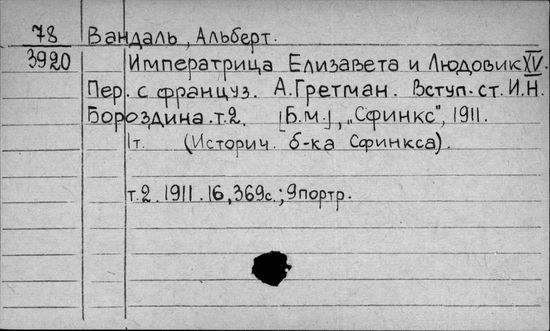 78 Вандаль, Альберт.
3920 Императрица Елизавета и Людовик XV.
Пер. с француз. А. Гретман. Вступ. ст. И.Н.
Бороздина. т.2. [Б.м.], „Сфинкс", 1911.
1т. (Историч. б-ка Сфинкса).
т.2. 1911. 16, 369с.; 9 портр.